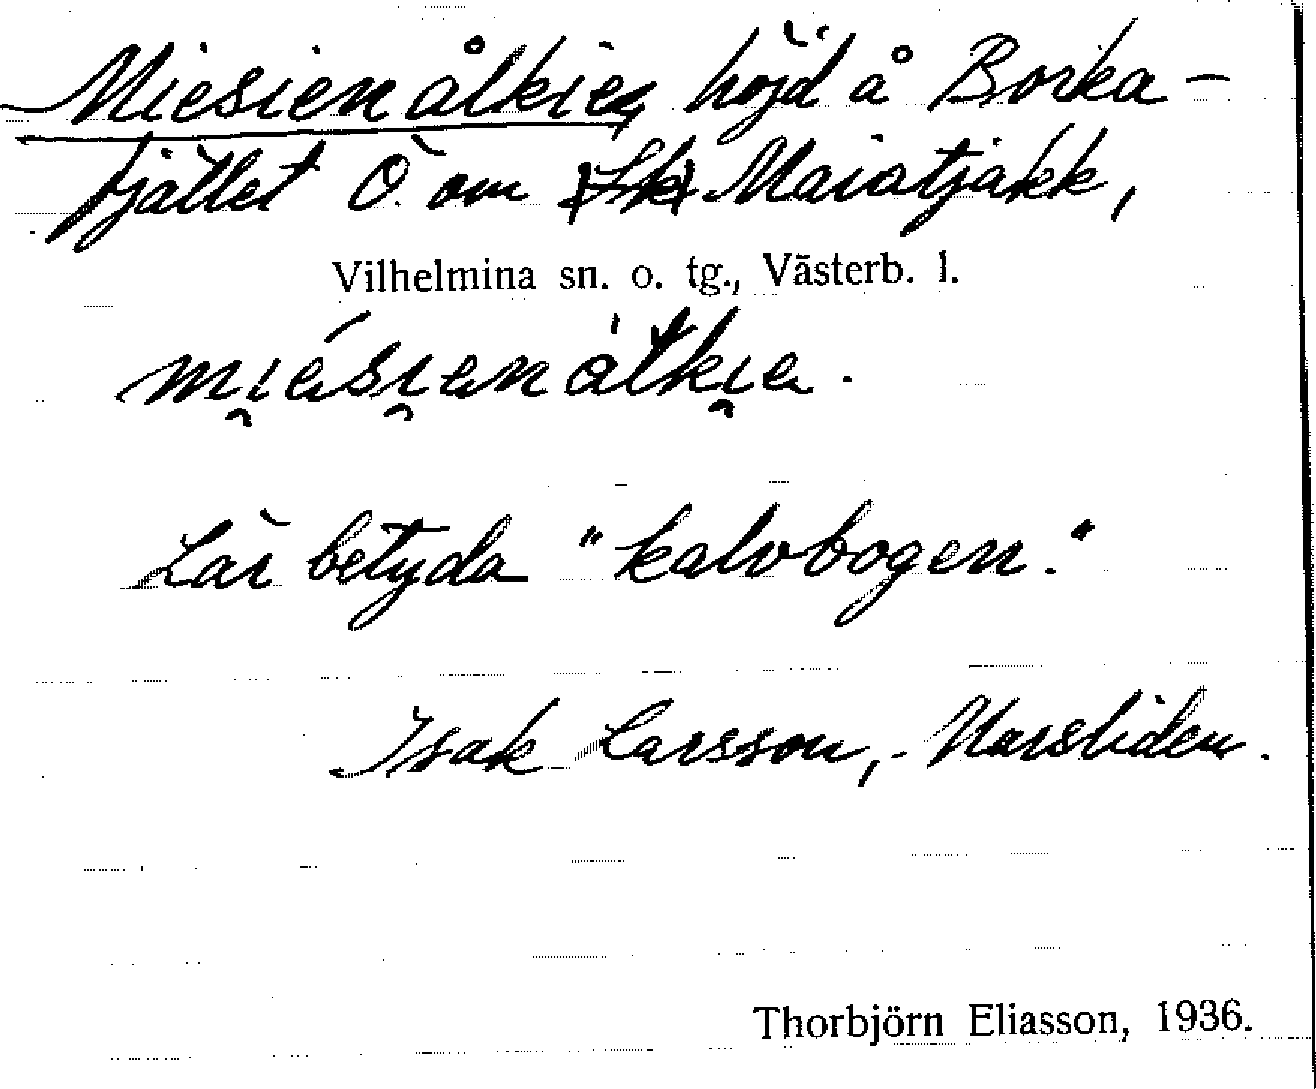 Miesienålkie, höjd å Borka-
fjället Ö. om (Sk) Maiatjakk,
Vilhelmina sn. o. tg., Västerb. l.
Lär betyda "kalvbogen."
Isak Larsson, Marsliden.
Thorbjörn Eliasson, 1936.